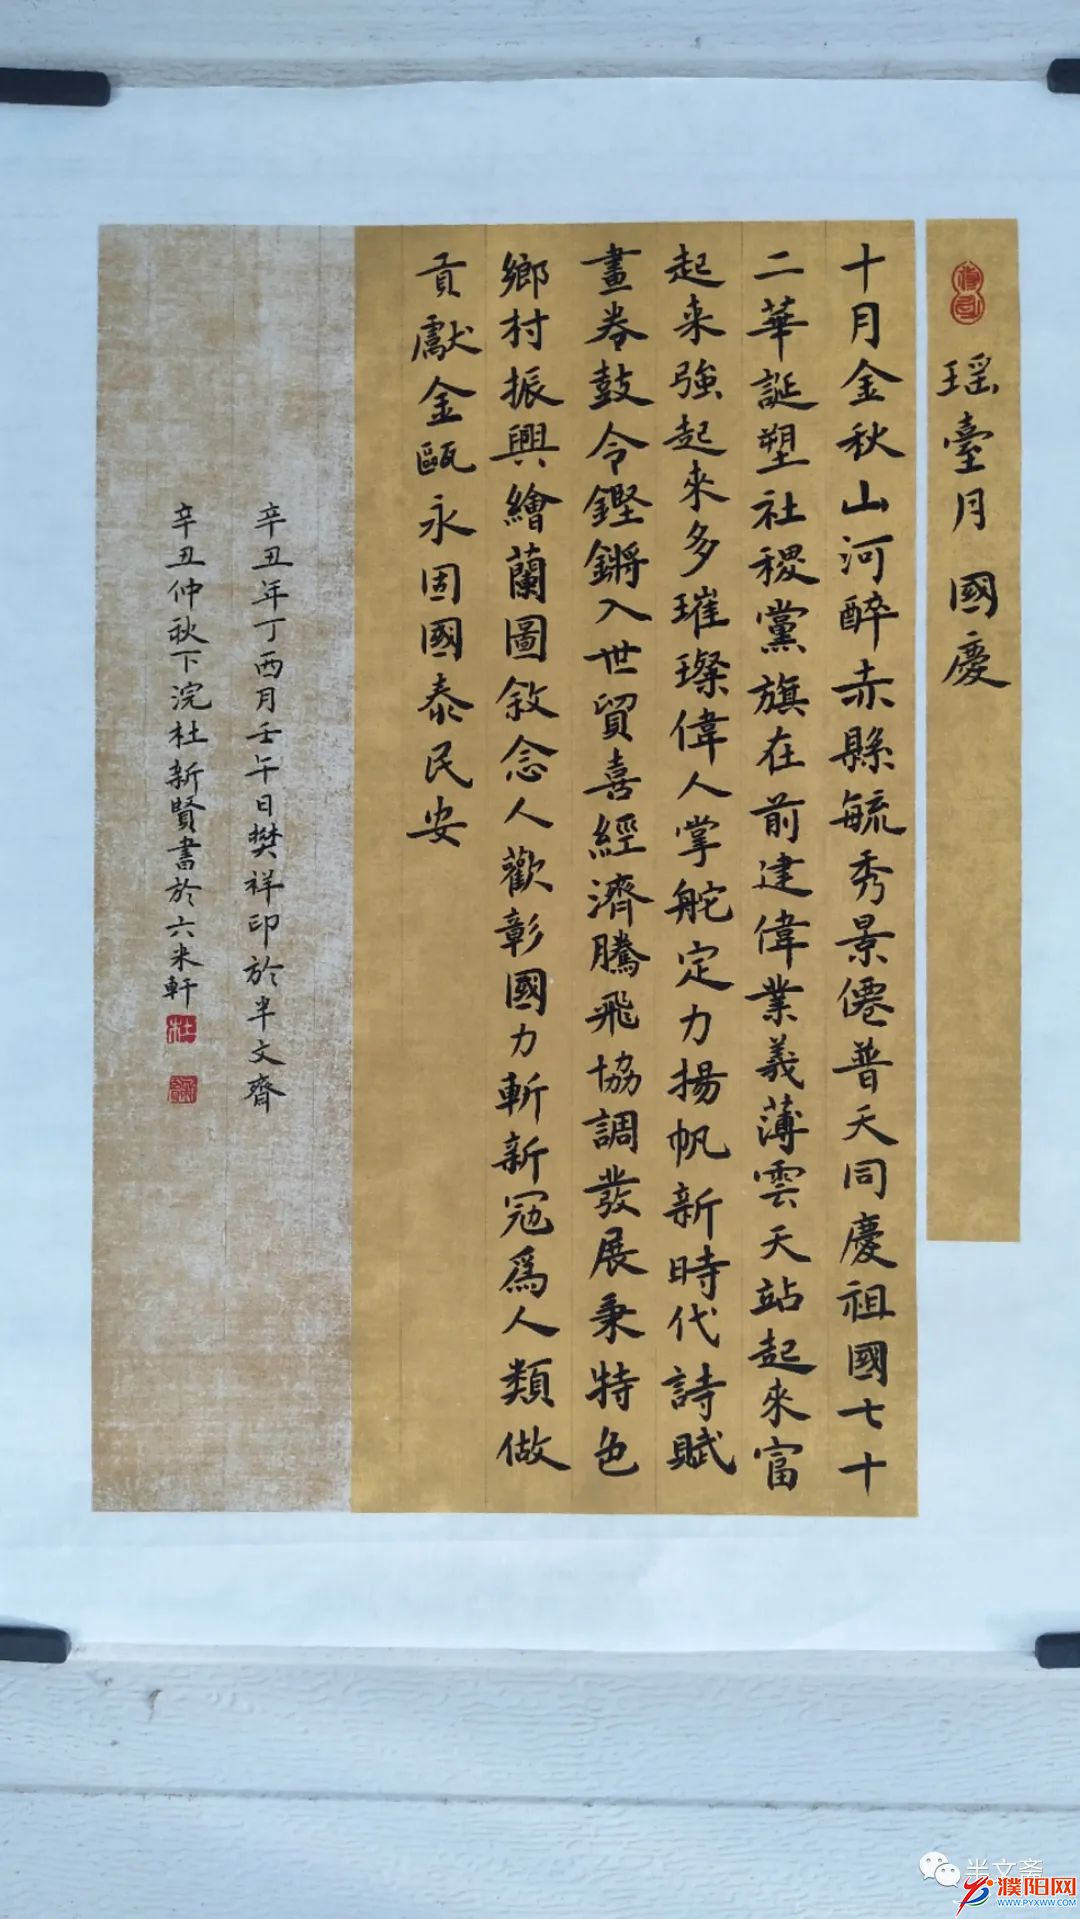 瑶臺月 國慶
十月金秋山河醉赤縣毓秀景僊普天同慶祖國七十
二華誕塑社稷黨旗在前建偉業義薄雲天站起來富
起来強起來多璀璨偉人掌舵定力揚帆新時代詩賦
畫卷鼓令鏗鏘入世貿喜經濟騰飛協調發展秉特色
鄉村振興繪蘭圖敘念人歡彰國力斬新冠爲人類做
貢獻金甌永固國泰民安
辛丑年丁酉月壬午日樊祥印於半文齋
辛丑仲秋下浣杜新賢書於六米軒
杜
半文斋
濮阳网
WWW.PYXWW.COM